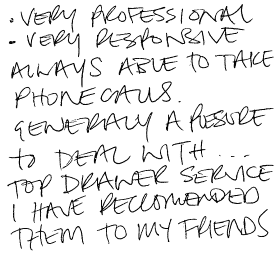 · VERY PROFESSIONAL
- VERY RESPONSIVE
ALWAYS ABLE TO TAKE
PHONE CALLS.
GENERALLY A PLESURE
TO DEAL WITH ...
TOP DRAWER SERVICE
I HAVE RECCOMENDED
THEM TO MY FRIENDS